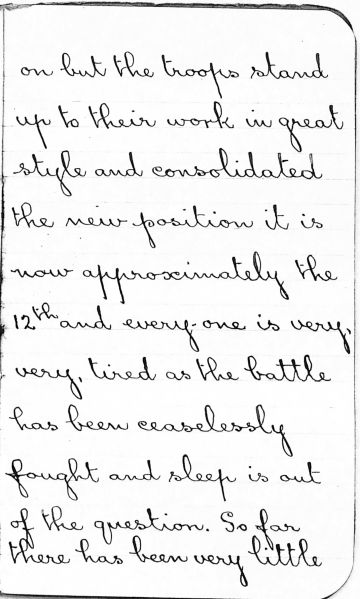 on but the troops stand
up to their work in great
style and consolidated
the new position it is
now approximately the
12th and every-one is very,
very, tired as the battle
has been ceaselessly
fought and sleep is out
of the question. So far
there has been very little